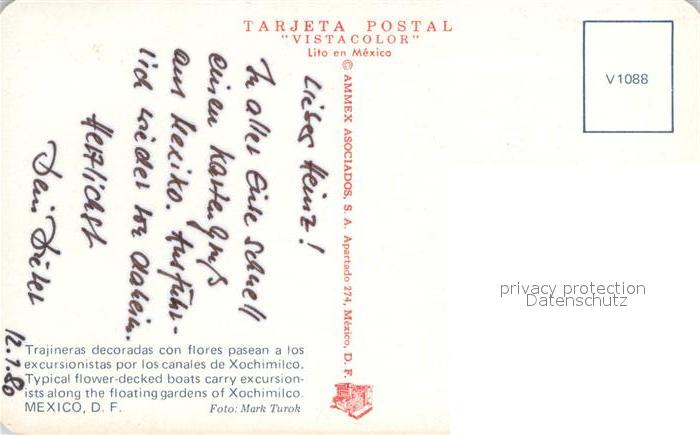 TARJETA POSTAL
"VISTACOLOR"
Lito en México
V1088
© AMMEX ASOCIADOS, S. A. Apartado 274, México, D. F.
Lieber Heinz!
In aller Eile schnell
einen Kartengruß
aus Mexiko. Ausführ-
lich wieder von daheim.
Herzlichst
Dein Dieter
12.1.80
Trajineras decoradas con flores pasean a los
excursionistas por los canales de Xochimilco.
Typical flower-decked boats carry excursion-
ists along the floating gardens of Xochimilco.
MEXICO, D. F. Foto: Mark Turok
privacy protection
Datenschutz